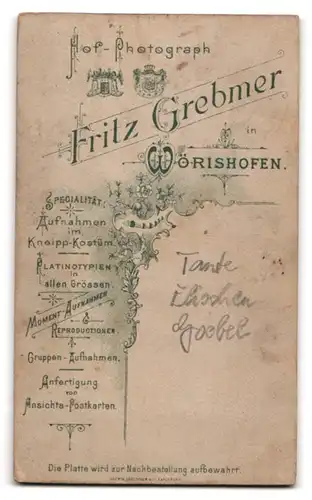 Hof-Photograph
Fritz Grebmer
in
WÖRISHOFEN.
SPECIALITÄT:
Aufnahmen
im
Kneipp-Kostüm.
PLATINOTYPIEN
in
allen Grössen.
MOMENT-AUFNAHMEN
&
REPRODUCTIONEN
Gruppen-Aufnahmen.
Anfertigung
von
Ansichts-Postkarten.
Tante
Elischen
Goebel
Die Platte wird zur Nachbestellung aufbewahrt.